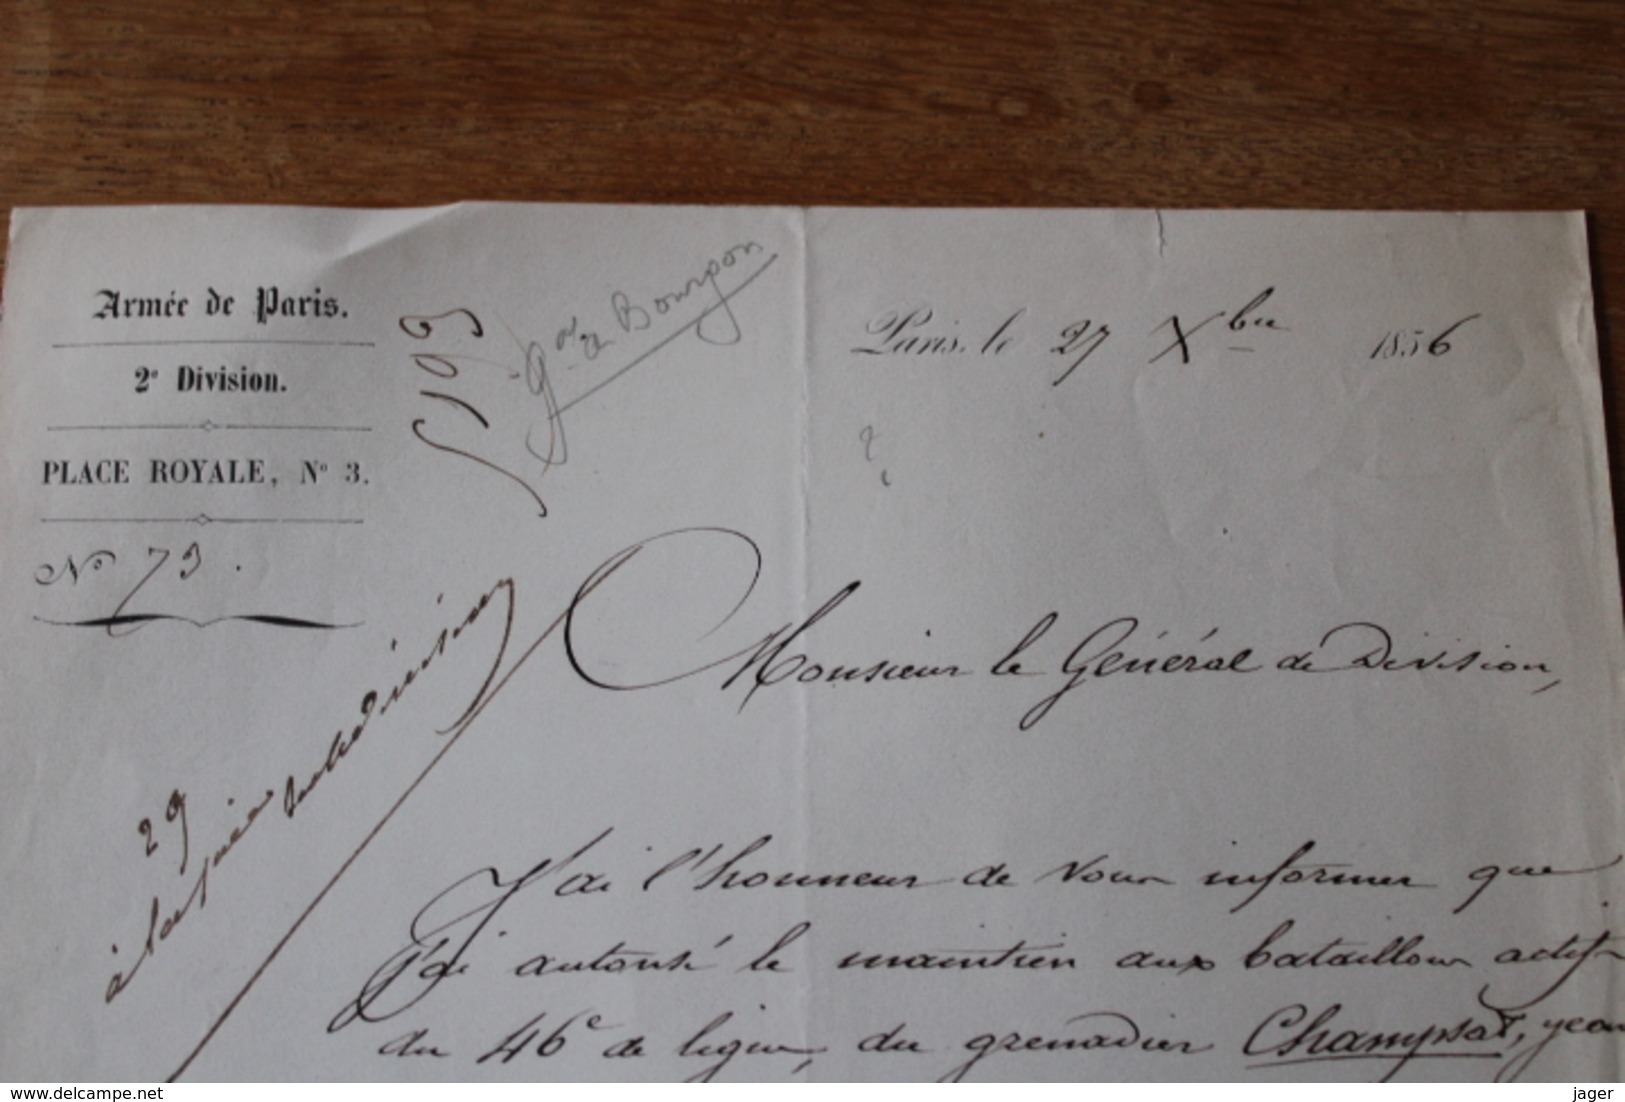 Armée de Paris.
2e Division.
PLACE ROYALE, No 3.
No 73.
5103
Gal de Bourgon
Paris, le 27 Xbre 1856
Monsieur le Général de Division,
29
à la
J'ai l'honneur de vous informer que
j'ai autorisé le maintien aux bataillons actifs
du 46e de ligne, du grenadier Champsat, jean
delcampe.net
jager